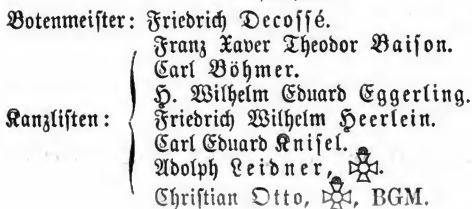 Botenmeister: Friedrich Decoffé.
Franz Xaver Theodor Baison.
Carl Böhmer.
H. Wilhelm Eduard Eggerling.
Kanzlisten: Friedrich Wilhelm Heerlein.
Carl Eduard Knisel.
Adolph Leidner, .
Christian Otto, , BGM.